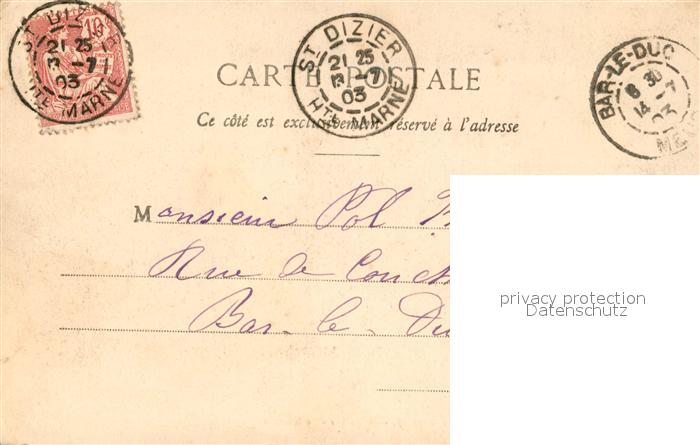 10
ST DIZIER
21 25
13 -7
03
HTE MARNE
ST DIZIER
21 25
13 -7
03
HTE MARNE
BAR-LE-DUC
8 30
14 -7
03
CARTE POSTALE
Ce côté est exclusivement réservé à l'adresse
Monsieur Pol
Rue de
Bar-le-Du
privacy protection
Datenschutz